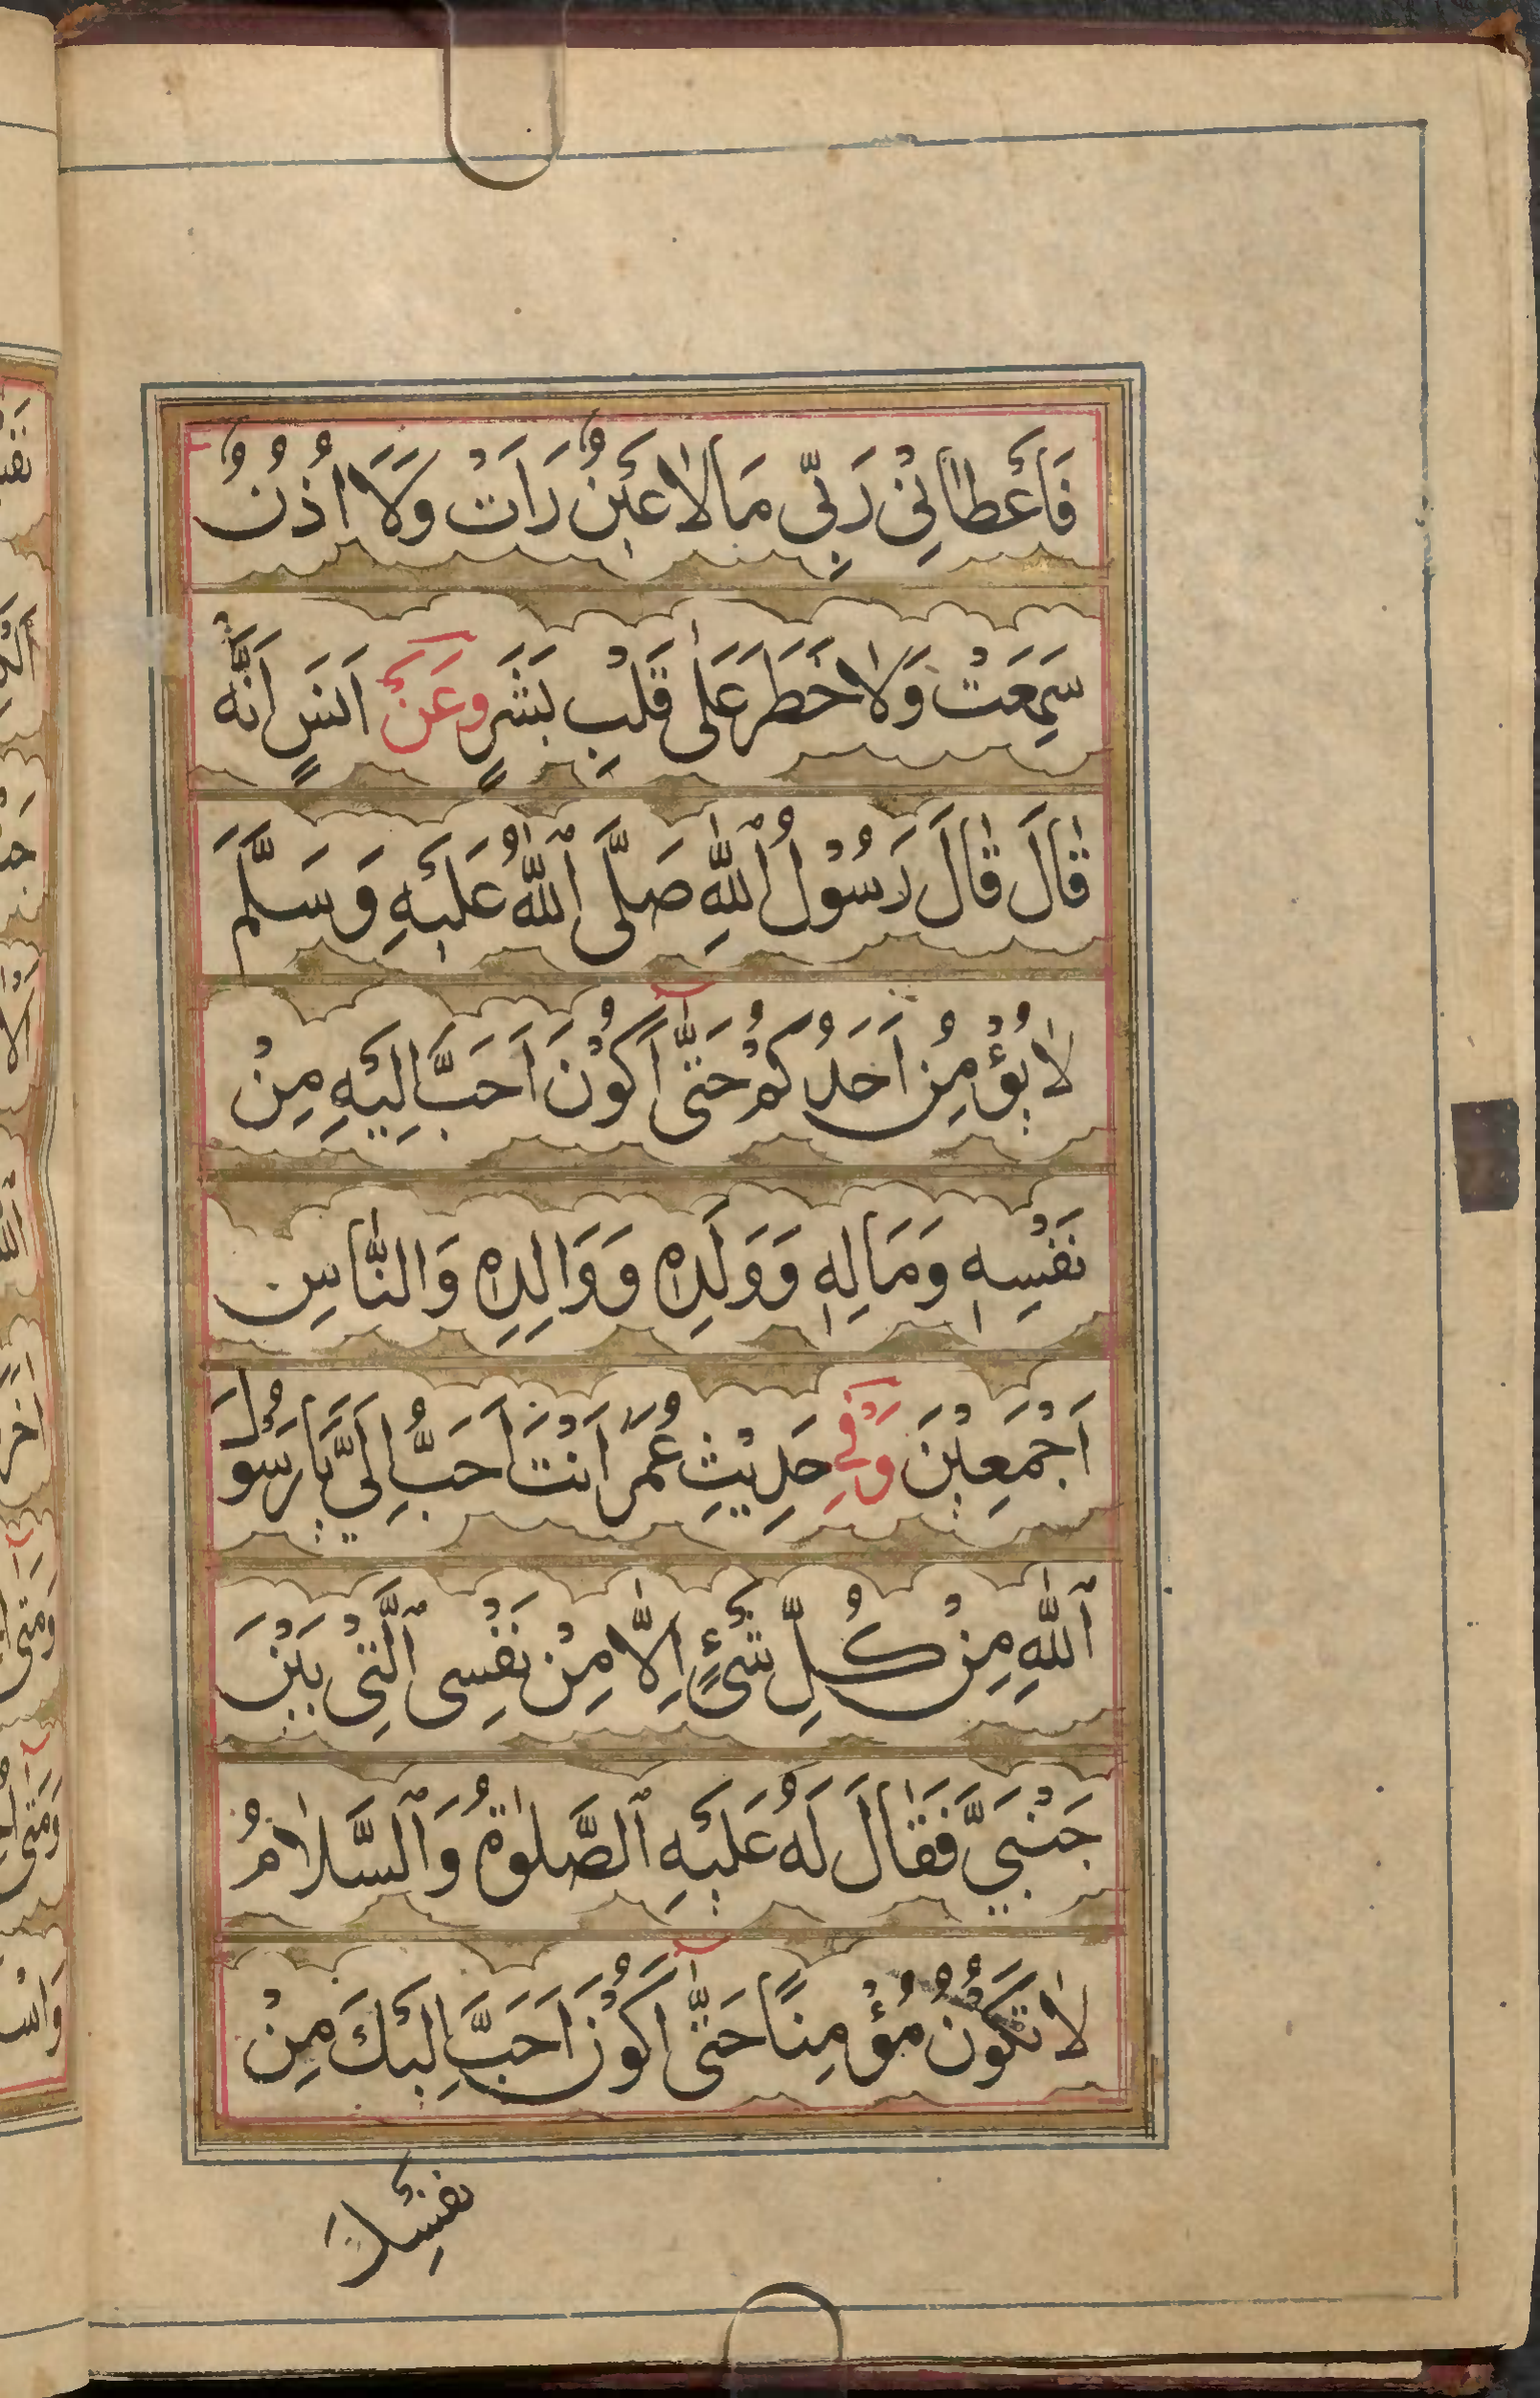 فَأَعْطَانِي رَبِّي مَا لَا عَيْنٌ رَأَتْ وَلَا أُذُنٌ
سَمِعَتْ وَلَا خَطَرَ عَلَى قَلْبِ بَشَرٍ وَعَنْ أَنَسٍ أَنَّهُ
قَالَ قَالَ رَسُولُ ٱللّٰهِ صَلَّى ٱللّٰهُ عَلَيْهِ وَسَلَّمَ
لَا يُؤْمِنُ أَحَدُكُمْ حَتَّى أَكُونَ أَحَبَّ إِلَيْهِ مِنْ
نَفْسِهِ وَمَالِهِ وَوَلَدِهِ وَوَالِدِهِ وَالنَّاسِ
أَجْمَعِينَ وَفِي حَدِيثِ عُمَرَ أَنْتَ أَحَبُّ إِلَيَّ يَا رَسُولَ
ٱللّٰهِ مِنْ كُلِّ شَيْءٍ إِلَّا مِنْ نَفْسِي ٱلَّتِي بَيْنَ
جَنْبَيَّ فَقَالَ لَهُ عَلَيْهِ ٱلصَّلٰوةُ وَٱلسَّلَامُ
لَا تَكُونُ مُؤْمِنًا حَتَّى أَكُونَ أَحَبَّ إِلَيْكَ مِنْ
نَفْسِكَ